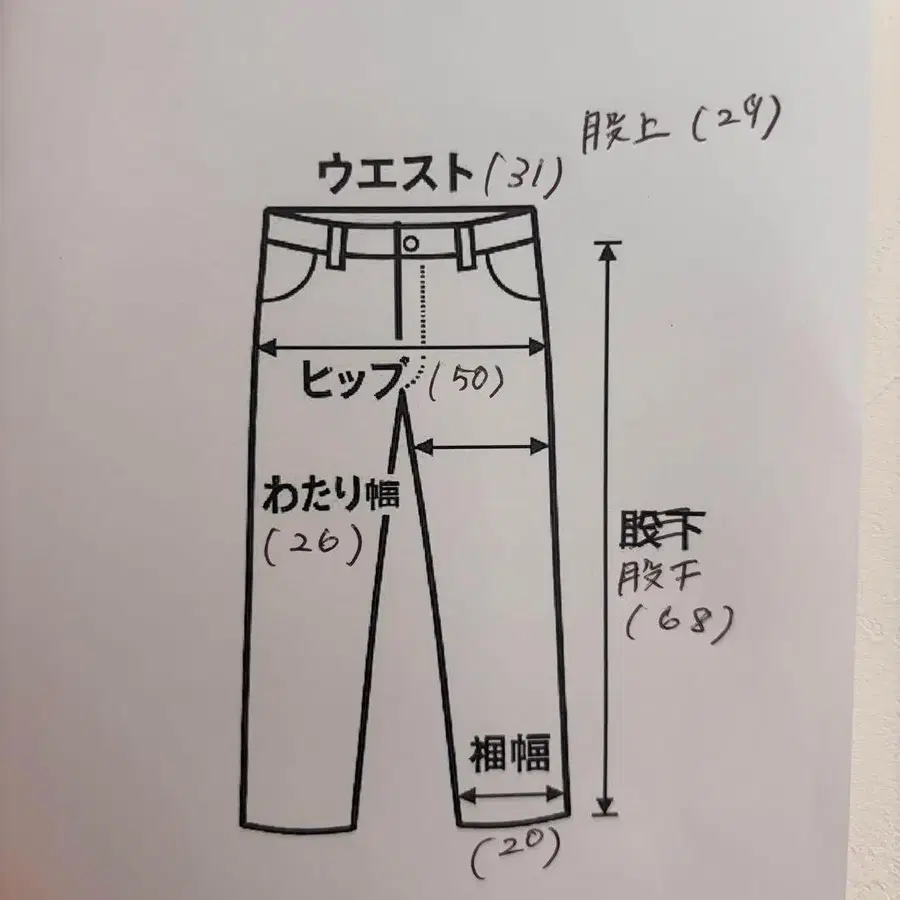 股上 (29)
ウエスト (31)
ヒップ (50)
わたり幅
(26)
股下
股下
(68)
裾幅
(20)